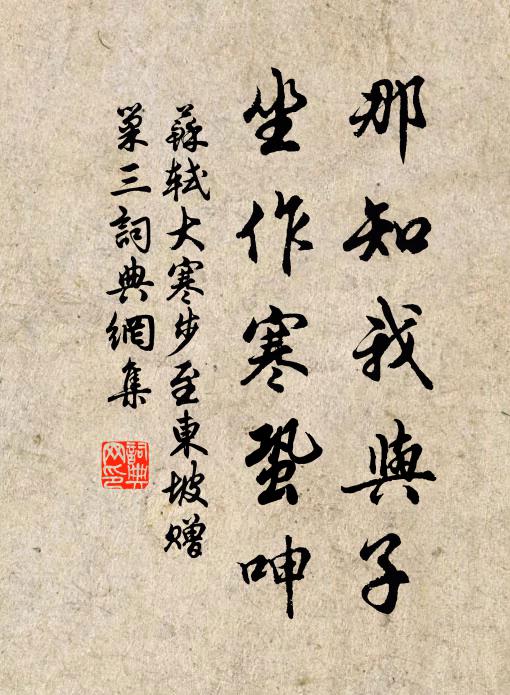 那知我與子
坐作寒蛩呻
蘇軾大寒步至東坡贈
巢三詞典網集
詞典
网印